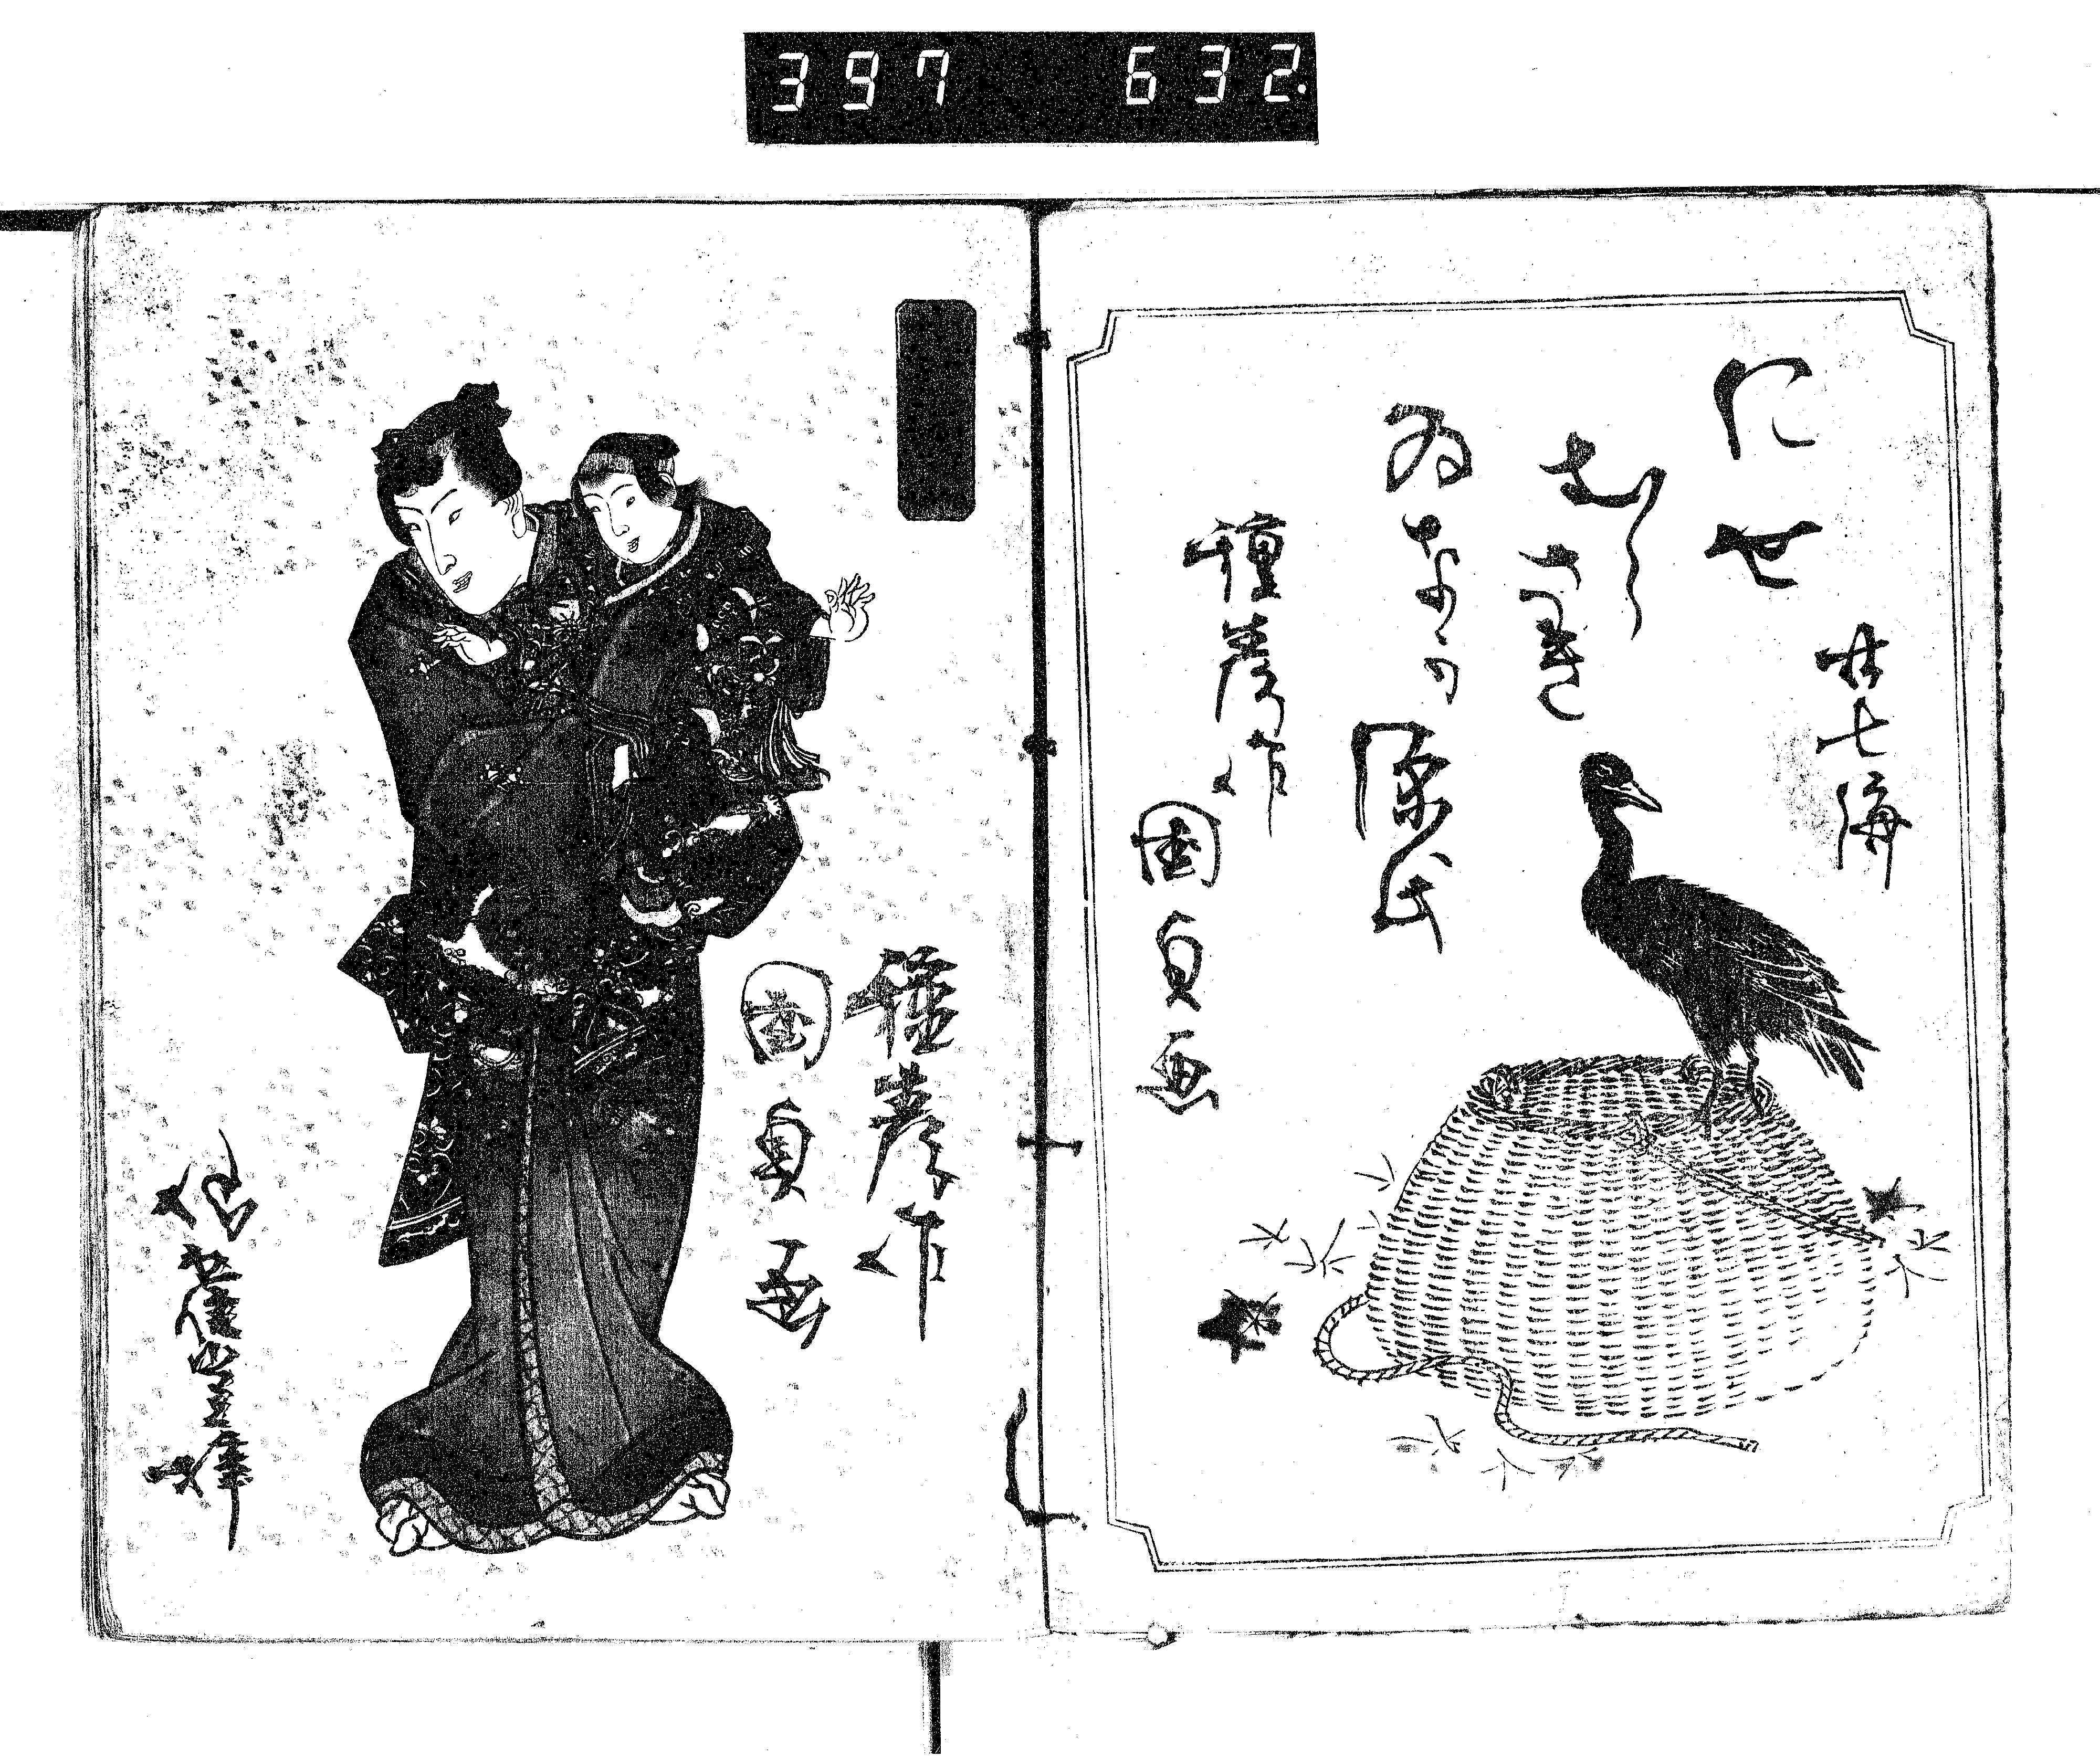 397 632.
廿七編
にせ
むらさき
ゐなか源氏
種彦作
國貞画
種彦作
國貞画